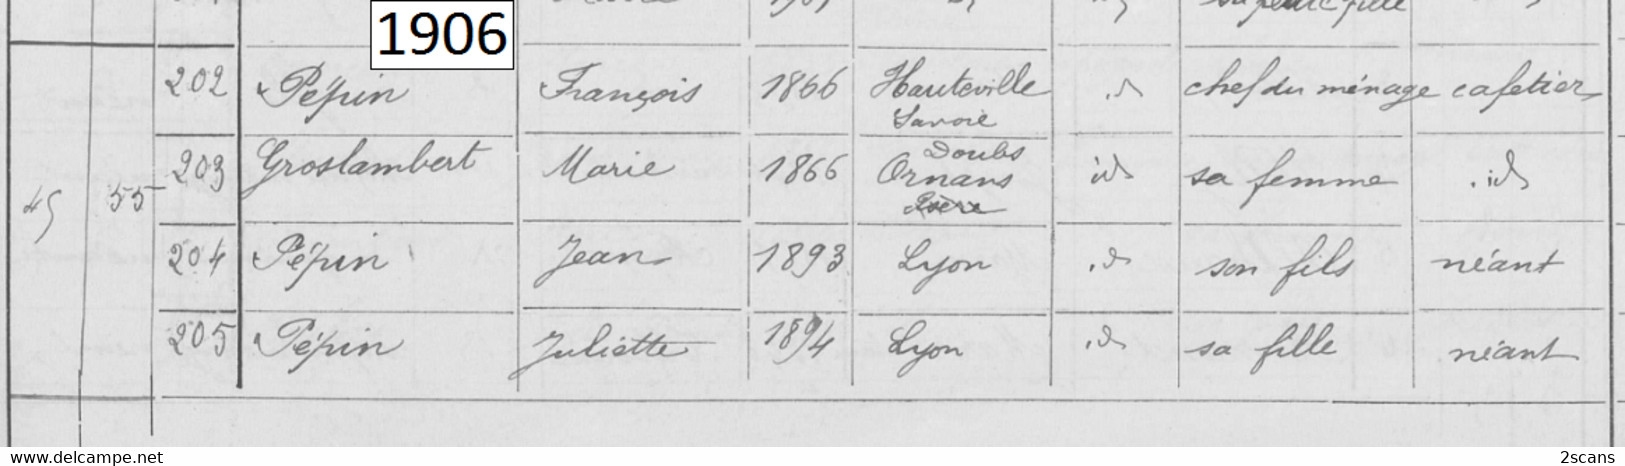 1906
202 Pépin François 1866 Hauteville Savoie id chef du ménage cafetier
203 Groslambert Marie 1866 Doubs Ornans id sa femme id
45 55
204 Pépin Jean 1893 Lyon id son fils néant
205 Pépin Juliette 1894 Lyon id sa fille néant
www.delcampe.net 2scans